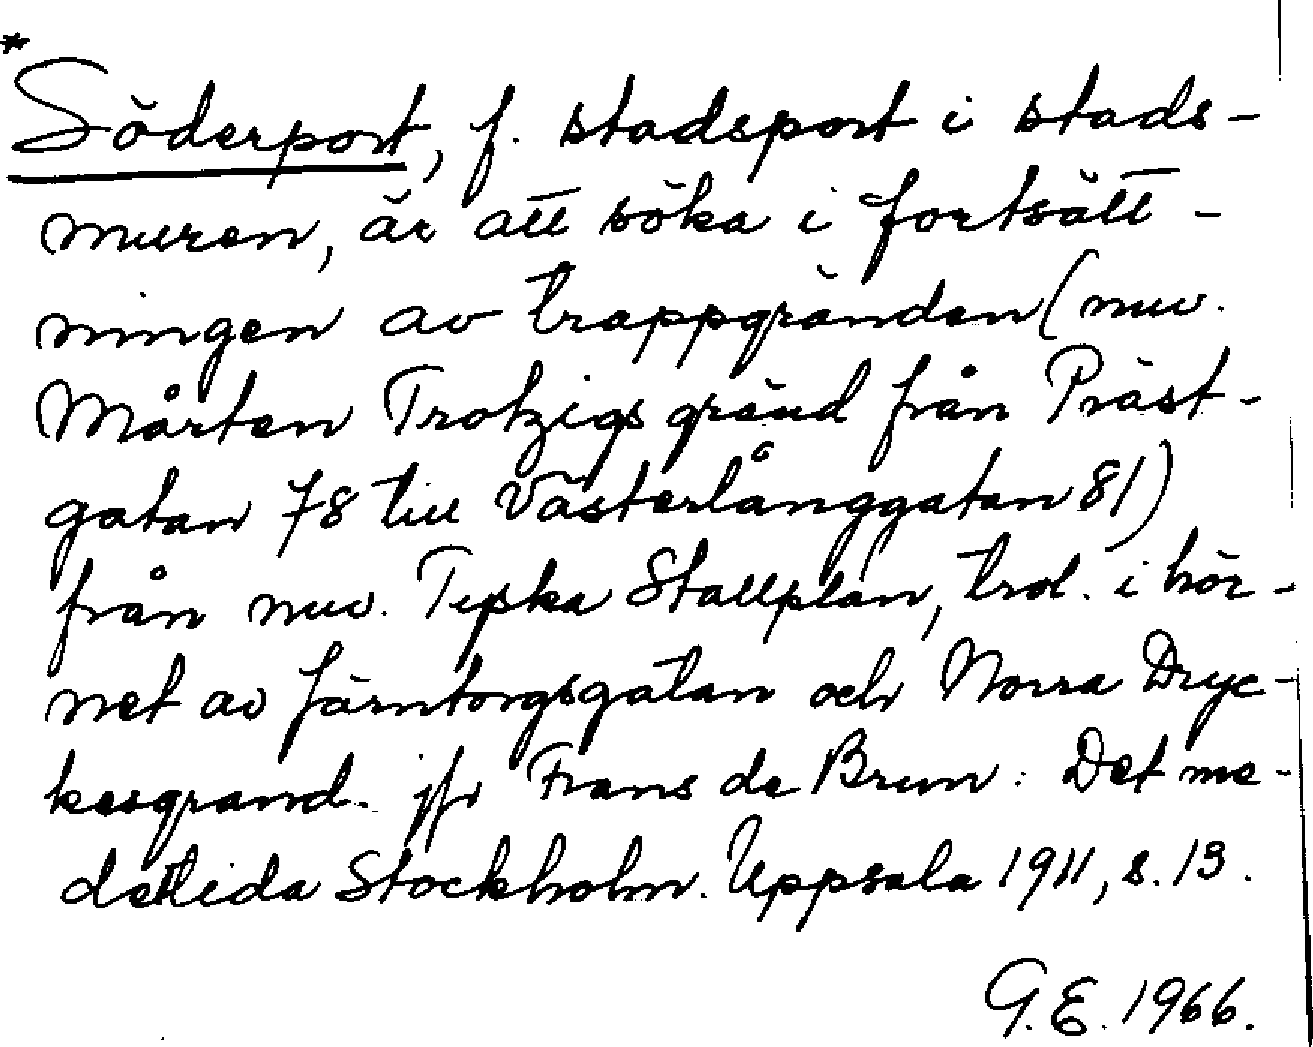 *
Söderport, f. stadsport i stads-
muren, är att söka i fortsätt-
ningen av trappgränden (nuv.
Mårten Trotzigs gränd från Präst-
gatan 78 till Västerlånggatan 81)
från nuv. Tyska Stallplan, trol. i hör-
net av Järntorgsgatan och Norra Dryc-
kesgrand. jfr Frans de Brun: Det me-
deltida Stockholm. Uppsala 1911, s. 13.
G.E. 1966.